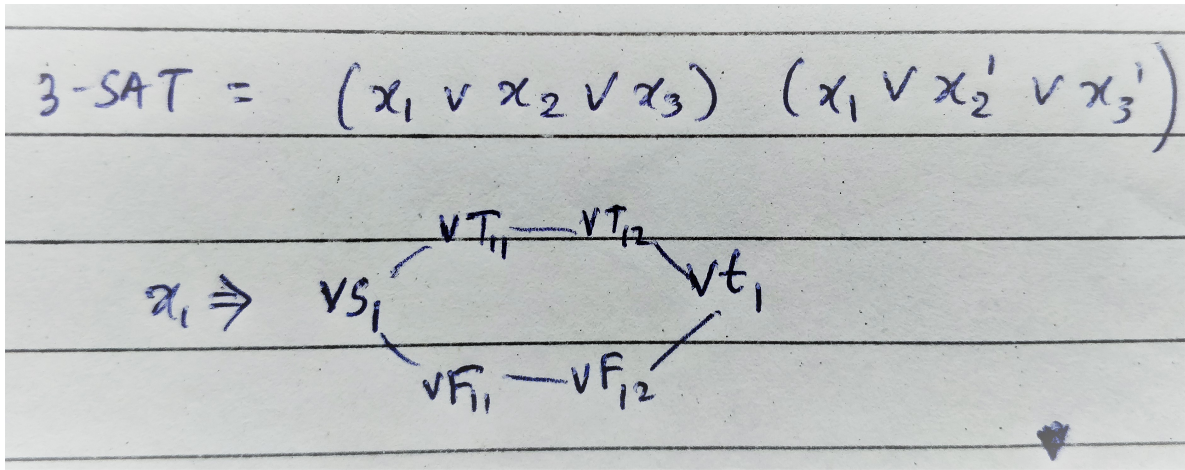 3-SAT = (x₁ ∨ x₂ ∨ x₃) (x₁ ∨ x₂' ∨ x₃')
VT₁₁ — VT₁₂
x₁ ⇒ VS₁ Vt₁
VF₁₁ — VF₁₂